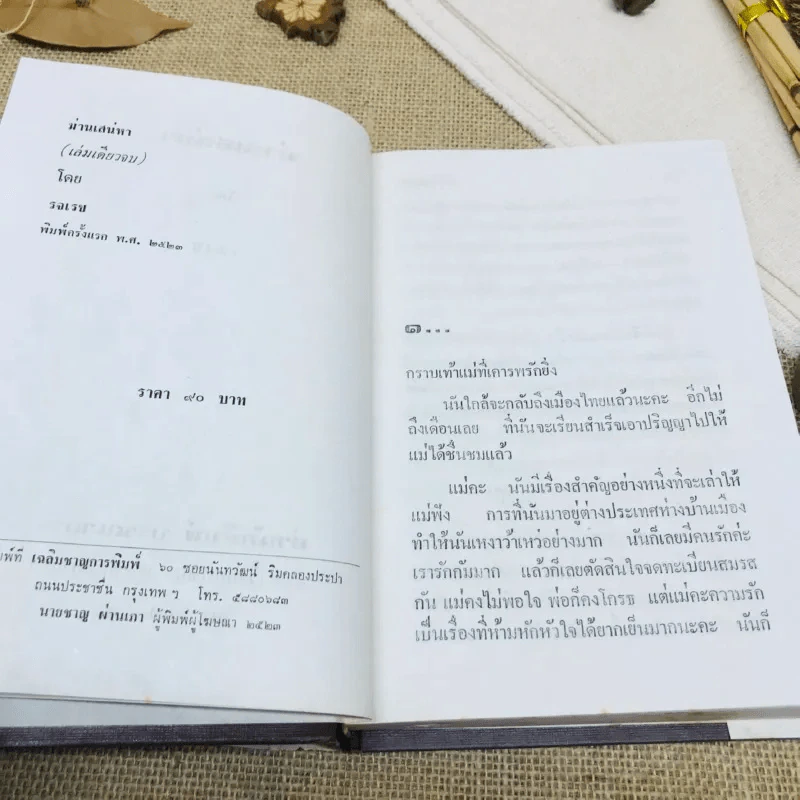 ม่านเสน่หา
(เล่มเดียวจบ)
โดย
รจเรข
พิมพ์ครั้งแรก พ.ศ. ๒๕๒๓
ราคา ๙๐ บาท
พ์ที่ เฉลิมชาญการพิมพ์ ๖๐ ซอยนันทวัฒน์ ริมคลองประปา
ถนนประชาชื่น กรุงเทพ ฯ โทร. ๕๘๘๐๖๘๓
นายชาญ ผ่านเภา ผู้พิมพ์ผู้โฆษณา ๒๕๒๓
๑...
กราบเท้าแม่ที่เคารพรักยิ่ง
นันใกล้จะกลับถึงเมืองไทยแล้วนะคะ อีกไม่
ถึงเดือนเลย ที่นันจะเรียนสำเร็จเอาปริญญาไปให้
แม่ได้ชื่นชมแล้ว
แม่คะ นันมีเรื่องสำคัญอย่างหนึ่งที่จะเล่าให้
แม่ฟัง การที่นันมาอยู่ต่างประเทศห่างบ้านเมือง
ทำให้นันเหงาว้าเหว่อย่างมาก นันก็เลยมีคนรักค่ะ
เรารักกันมาก แล้วก็เลยตัดสินใจจดทะเบียนสมรส
กัน แม่คงไม่พอใจ พ่อก็คงโกรธ แต่แม่คะความรัก
เป็นเรื่องที่ห้ามหักหัวใจได้ยากเย็นมากนะคะ นันก็